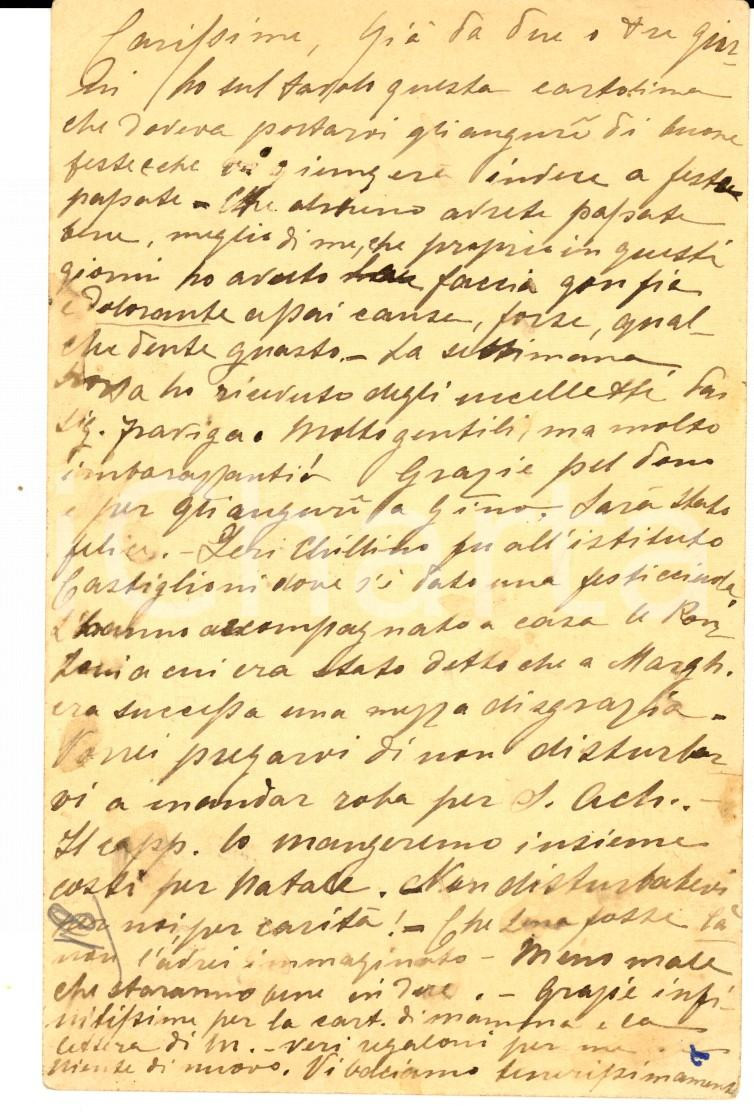 Carissime, Già da due o tre gior-
ni ho sul tavolo questa cartolina
che doveva portarvi gli augurii di buone
feste e che vi giungerà invece a feste
passate - Che almeno avrete passate
bene, meglio di me, che proprio in questi
giorni ho avuto faccia gonfia
e dolorante assai causa, forse, qual-
che dente guasto. - La settimana
ho ricevuto degli uccelletti dai
Sig. Molto gentili, ma molto
imbarazzanti! Grazie pel dono
e per gli augurii a Gino. Sarà stato
felice. - Ieri Chillino fu all'istituto
Castiglioni dove s'è dato una festicciuola.
L'hanno accompagnato a casa le Ron-
a cui era stato detto che a Margh.
era successa una mezza disgrazia -
Vorrei pregarvi di non disturbar-
vi a mandar roba per S. Ach. -
Il capp. lo mangeremo insieme
costì per Natale. Non disturbatevi
per noi per carità! - Che Lena fosse là
non l'avrei immaginato - Meno male
che staranno bene in due. - Grazie infi-
nitissime per la cart. di mamma e la
lettera di M. - veri regaloni per me.
niente di nuovo. Vi baciamo tenerissimamente
18
iCharta